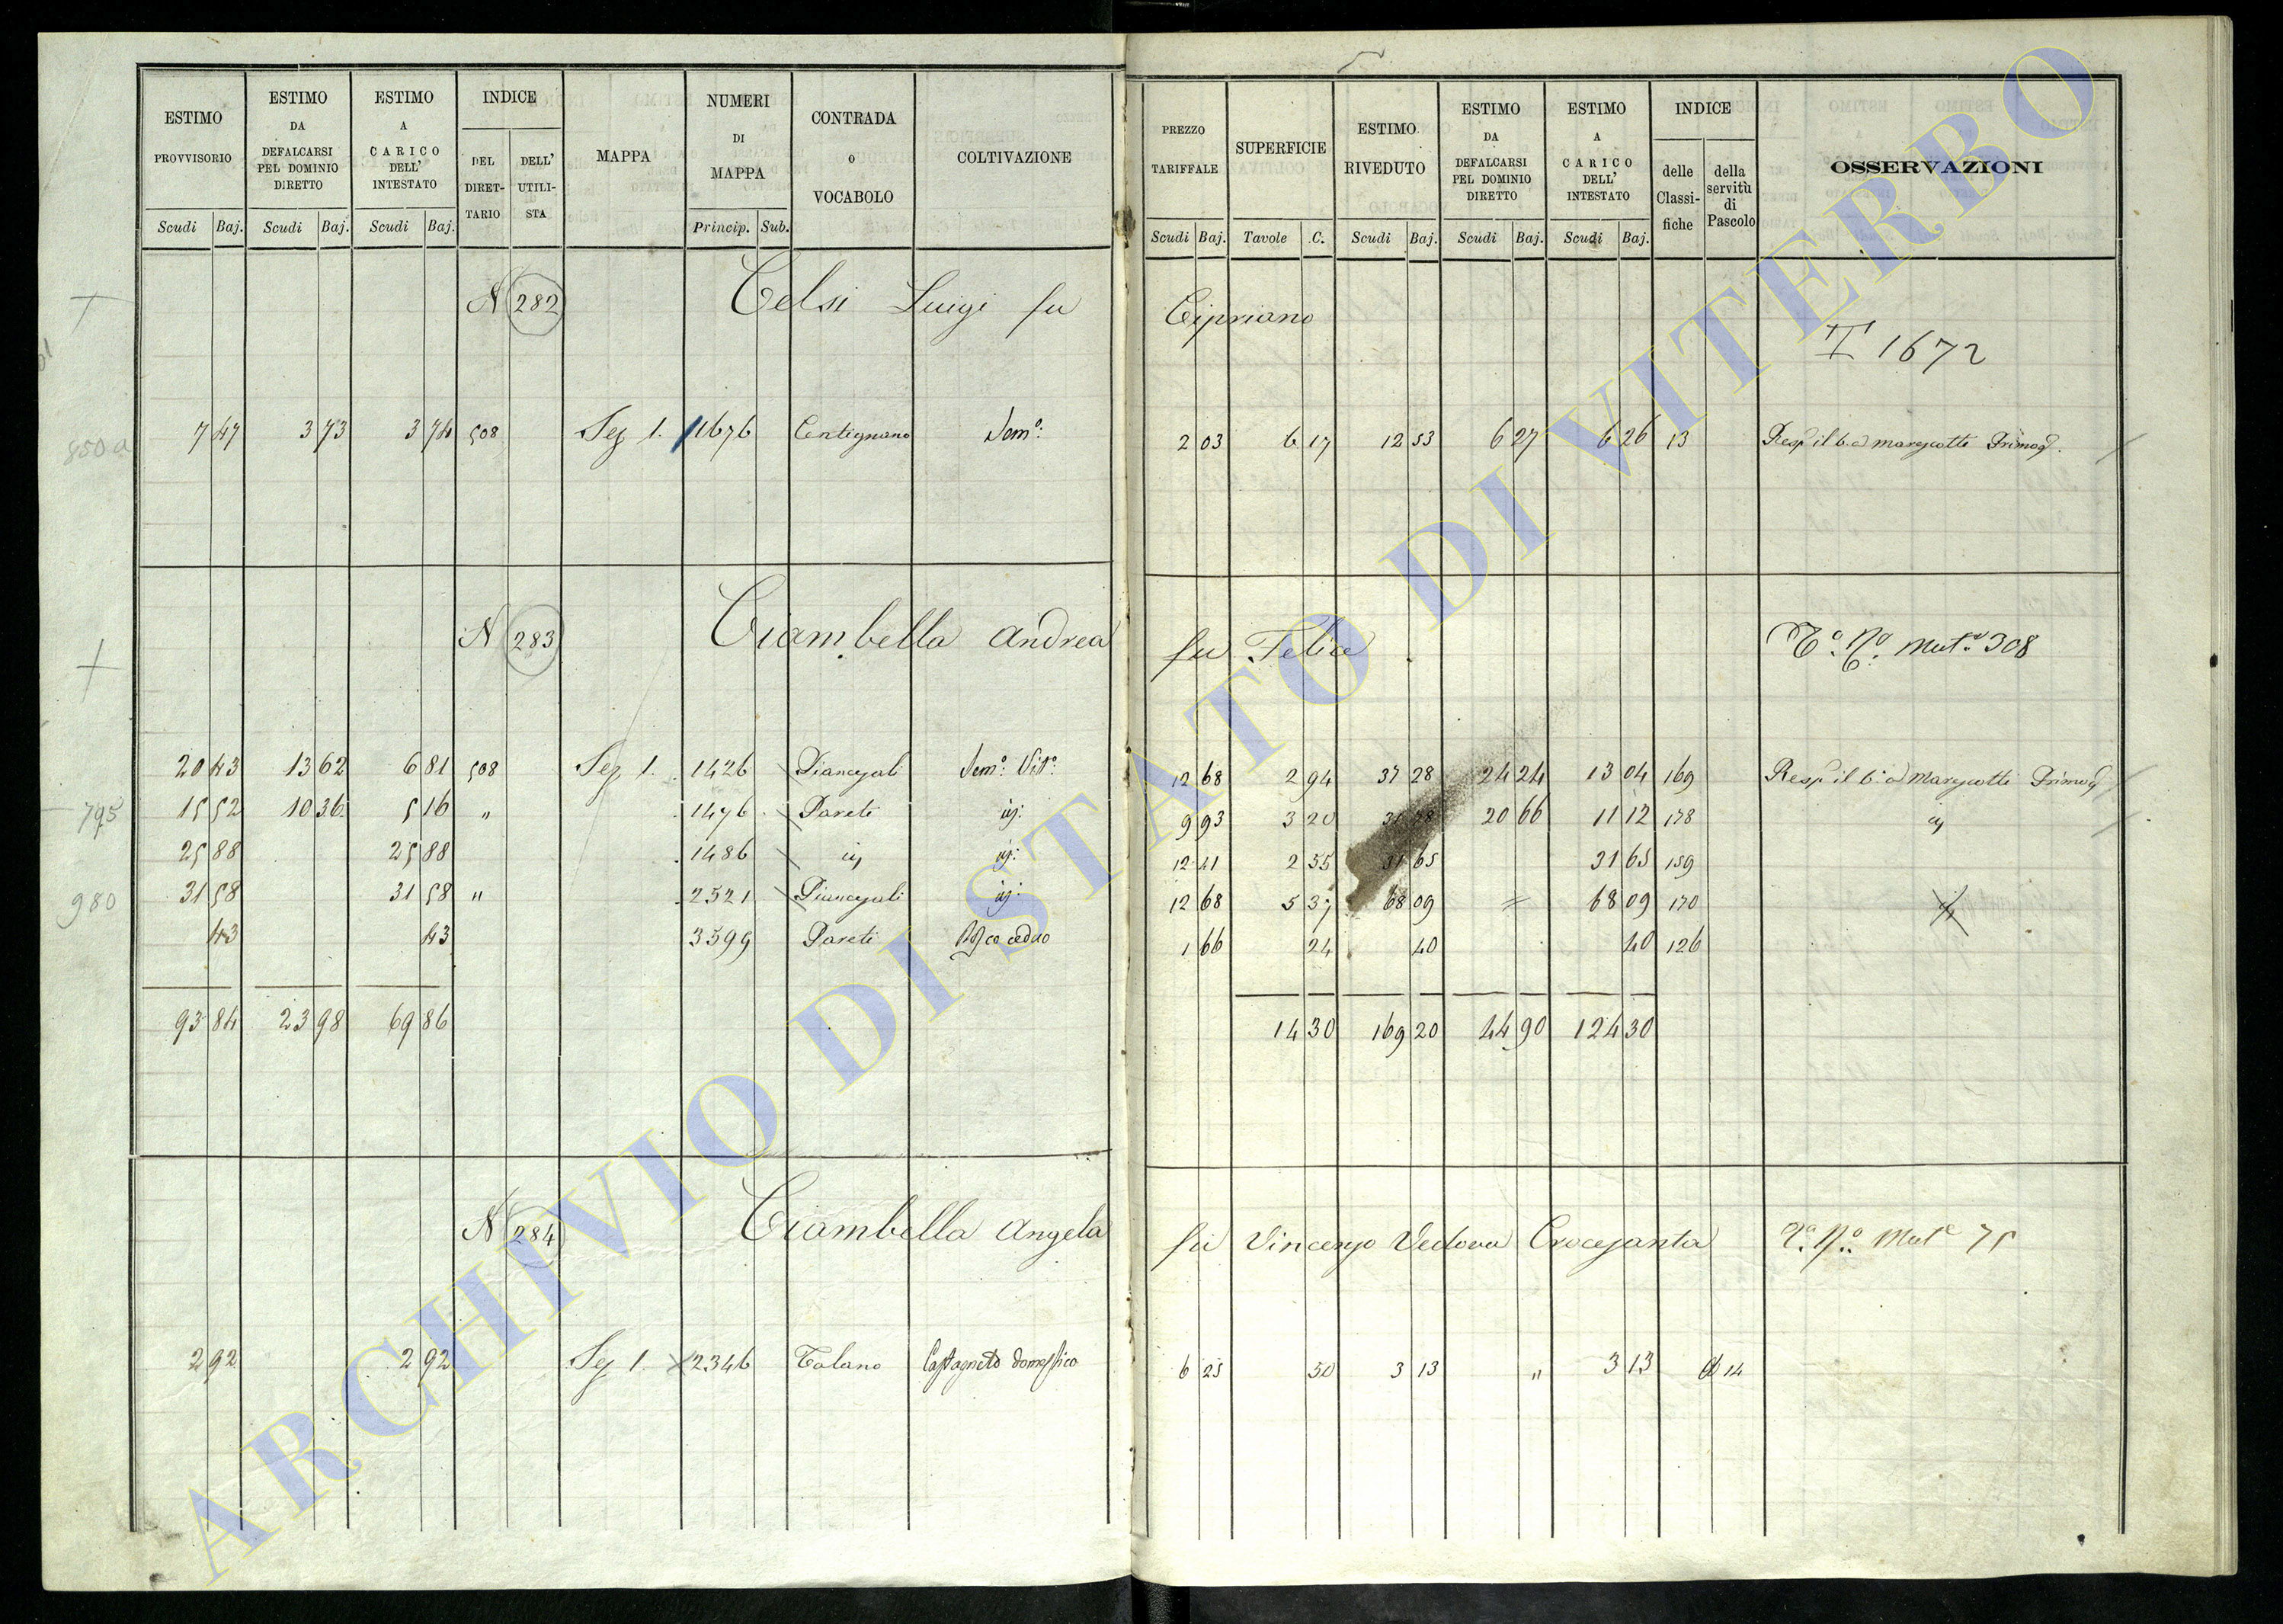 ESTIMO PROVVISORIO Scudi Baj.
ESTIMO DA DEFALCARSI PEL DOMINIO DIRETTO Scudi Baj.
ESTIMO A CARICO DELL' INTESTATO Scudi Baj.
INDICE DEL DIRET-TARIO DELL' UTILI-STA
MAPPA
NUMERI DI MAPPA Princip. Sub.
CONTRADA o VOCABOLO
COLTIVAZIONE
PREZZO TARIFFALE Scudi Baj.
SUPERFICIE Tavole C.
ESTIMO RIVEDUTO Scudi Baj.
ESTIMO DA DEFALCARSI PEL DOMINIO DIRETTO Scudi Baj.
ESTIMO A CARICO DELL' INTESTATO Scudi Baj.
INDICE delle Classi-fiche della servitù di Pascolo
OSSERVAZIONI
N 282 Celsi Luigi fu Cipriano
T 1672
850 a 7 47 3 73 3 74 508 Sez 1. 1676 Centignano Sem.° 2 03 6 17 12 53 6 27 6 26 13
N 283 Ciambella Andrea fu Felice Mut. 308
20 43 13 62 6 81 508 Sez 1. 1426 Sem.° Vit.° 12 68 2 94 37 28 24 24 13 04 169
795 15 52 10 36 5 16 " 1476 Pareti 9 93 3 20 20 66 11 12 178
25 88 25 88 1486 12 41 2 55 31 65 31 65 159
980 31 58 31 58 " 2521 12 68 5 37 68 09 = 68 09 170
43 43 3599 Pareti Bosco ceduo 1 66 24 40 40 126
93 84 23 98 69 86 14 30 169 20 44 90 124 30
N 284 Ciambella Angela fu Vincenzo Vedova Crocesanta Mut 75
2 92 2 92 Sez 1. 2346 Talano Castagneto domestico 6 25 50 3 13 " 3 13 d 14
ARCHIVIO DI STATO DI VITERBO